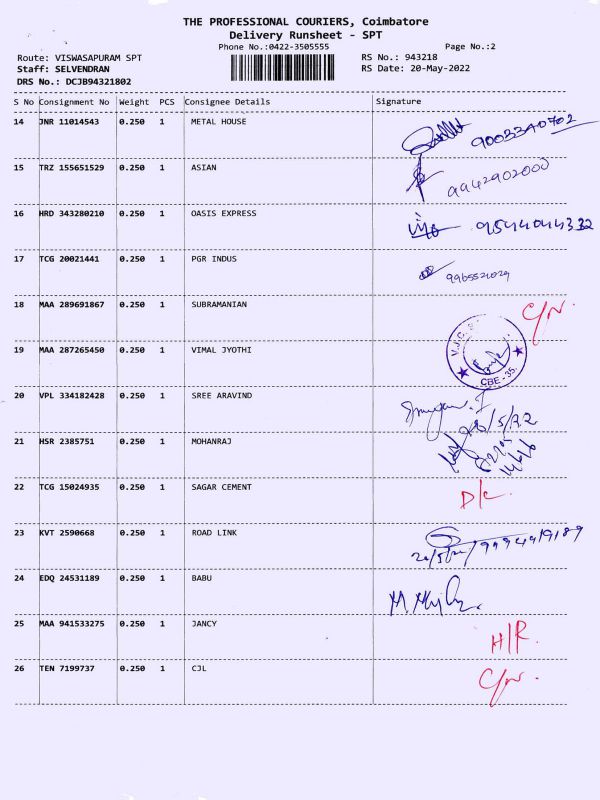 THE PROFESSIONAL COURIERS, Coimbatore
Delivery Runsheet - SPT
Phone No.:0422-3505555 Page No.:2
Route: VISWASAPURAM SPT RS No.: 943218
Staff: SELVENDRAN RS Date: 20-May-2022
DRS No.: DCJB94321802
S No Consignment No Weight PCS Consignee Details Signature
14 JNR 11014543 0.250 1 METAL HOUSE 9003340702
15 TRZ 155651529 0.250 1 ASIAN 9942902000
16 HRD 343280210 0.250 1 OASIS EXPRESS
17 TCG 20021441 0.250 1 PGR INDUS
18 MAA 289691867 0.250 1 SUBRAMANIAN
19 MAA 287265450 0.250 1 VIMAL JYOTHI CBE - 35.
20 VPL 334182428 0.250 1 SREE ARAVIND
21 HSR 2385751 0.250 1 MOHANRAJ
22 TCG 15024935 0.250 1 SAGAR CEMENT D/c.
23 KVT 2590668 0.250 1 ROAD LINK
24 EDQ 24531189 0.250 1 BABU
25 MAA 941533275 0.250 1 JANCY H/R.
26 TEN 7199737 0.250 1 CJL